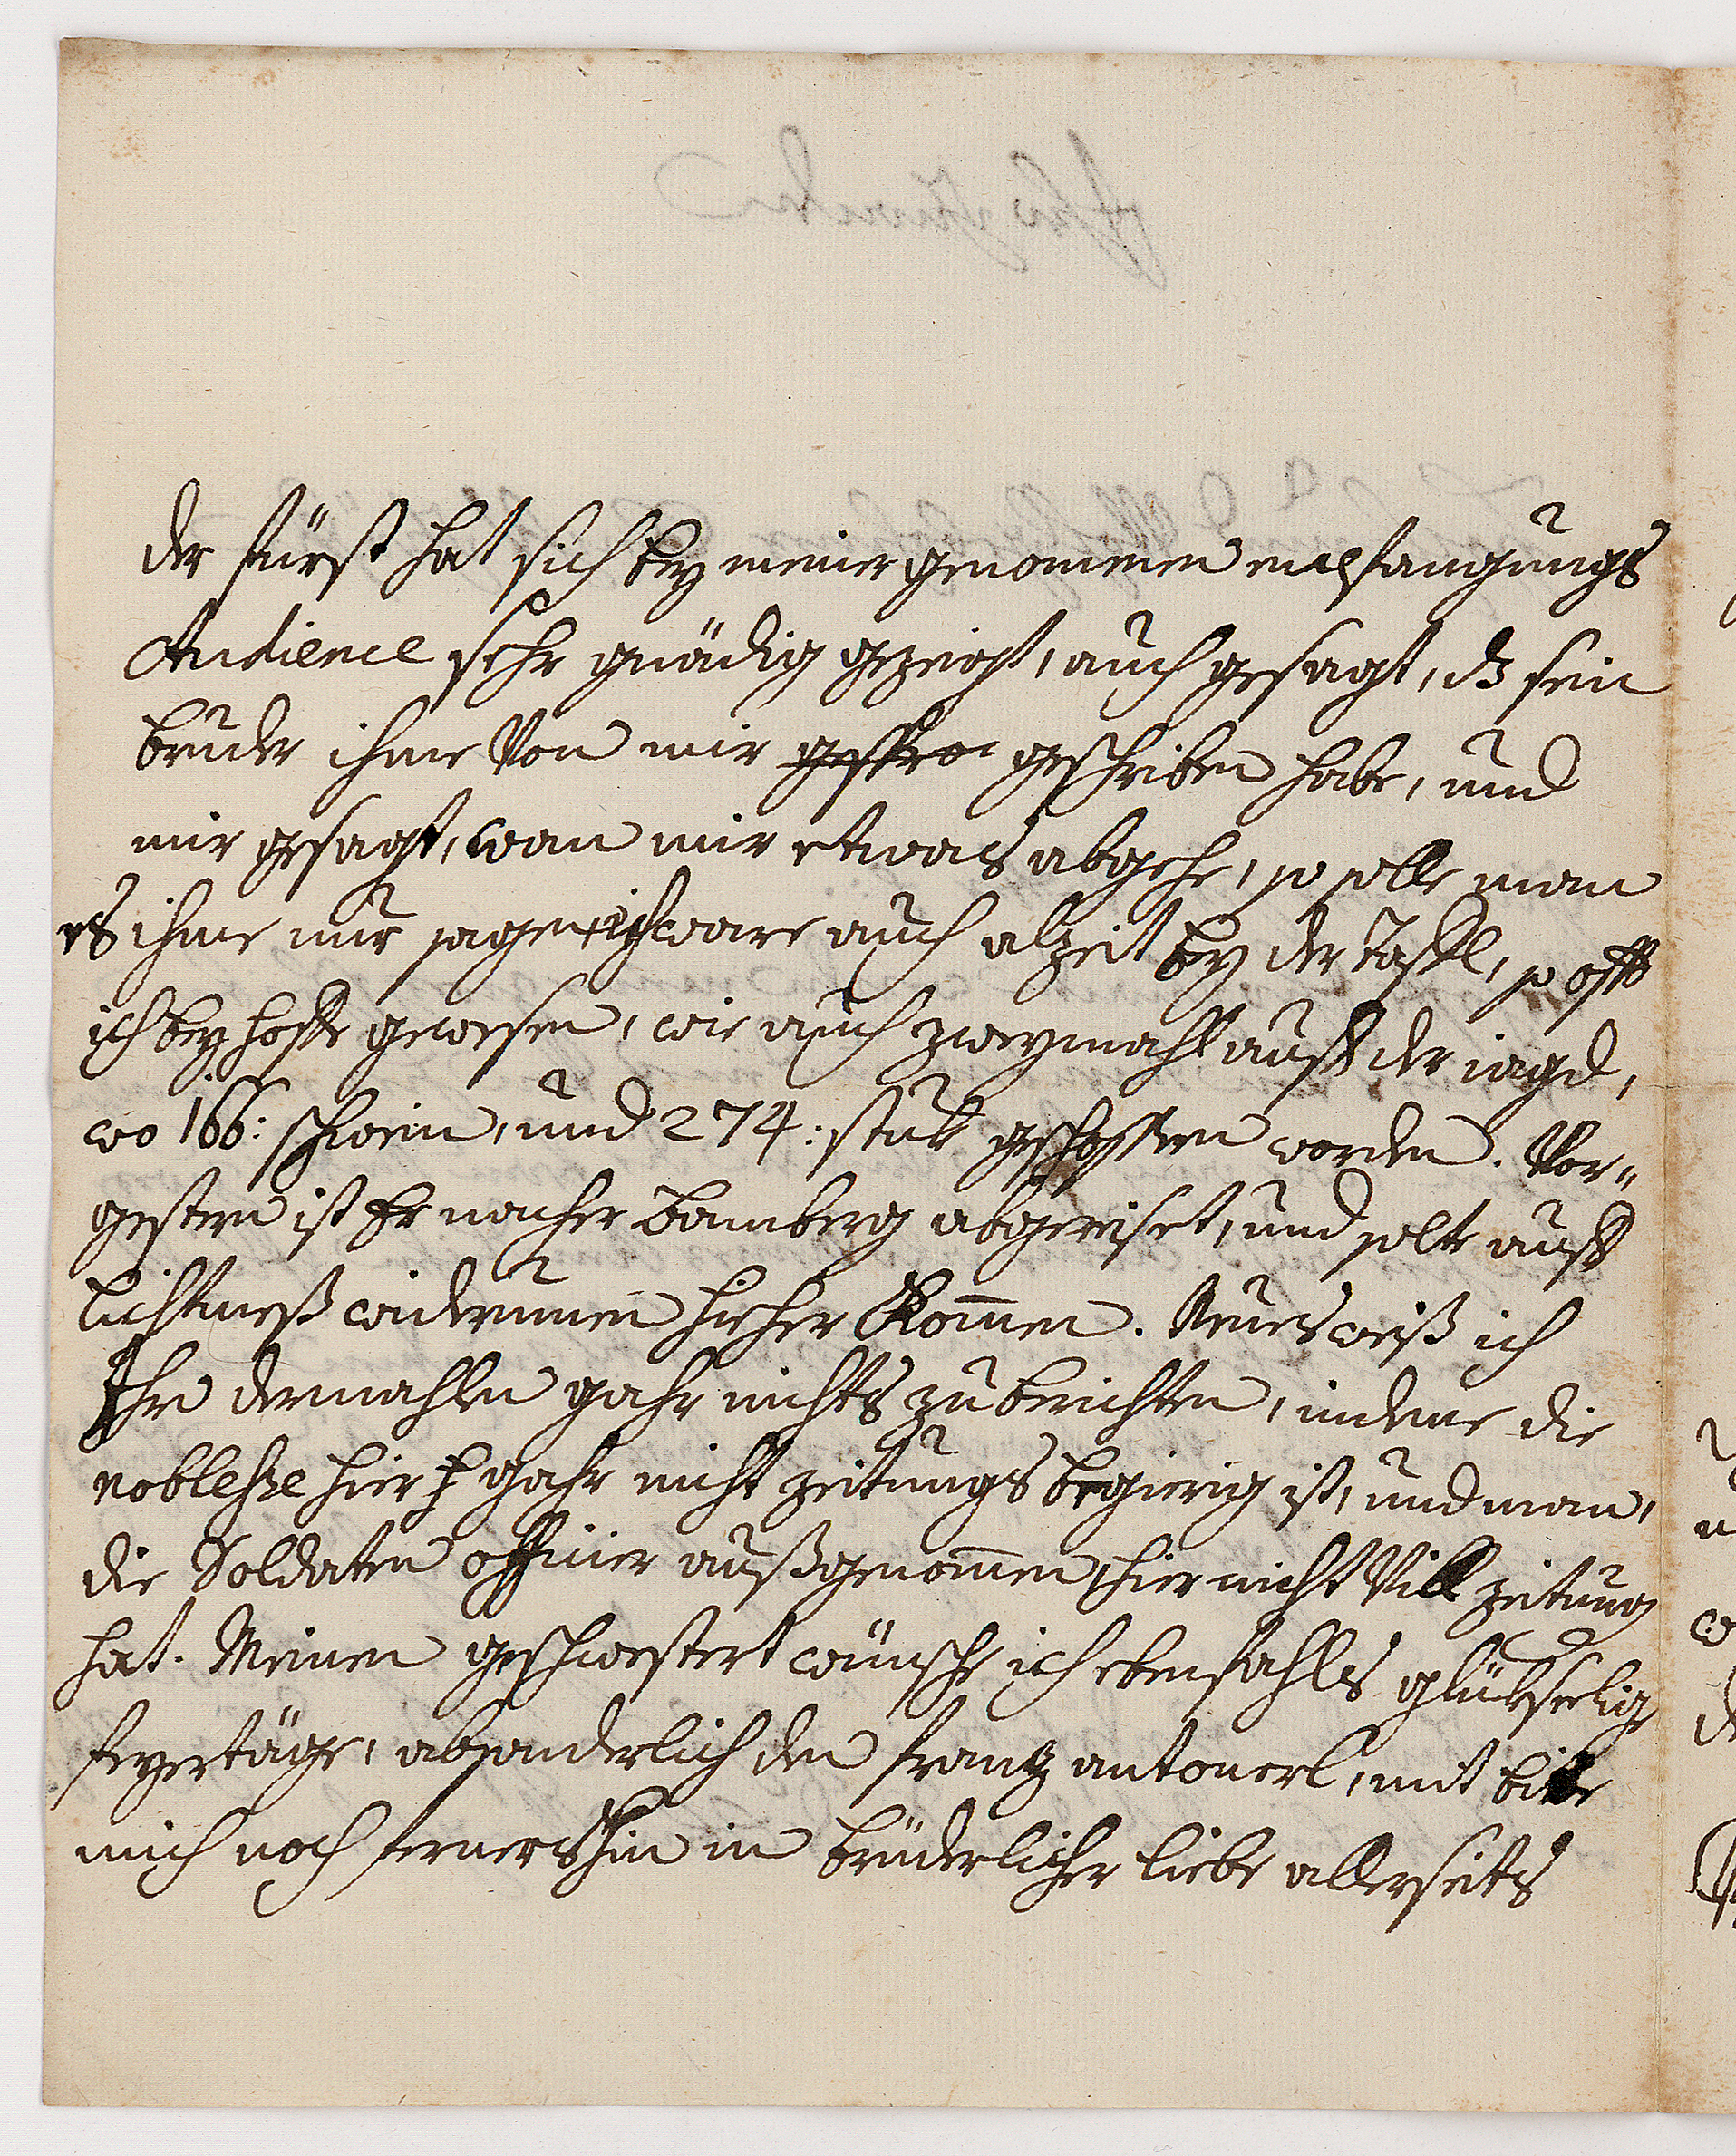 der fürst hat sich bey meiner genommenen empfangungs
Audience sehr gnädig gezeigt, auch gesagt, dz sein
bruder ihme Von mir geschriben habe, und
mir gesagt, wan mir etwas abgehe, so solle man
es ihme nur sagen, ich ware auch alzeit bey der tafl, so offt
ich bey hoffe gewesen, wie auch zweymahl auff der iagd,
wo 166: schwein, und 274: stuk geschossen worden. Vor-
gestern ist Er nacher Bamberg abgereiset, und solte auff
lichtmeß widerumen hieher Kommen. Neues weiß ich
Ihr dermahlen gahr nichts zu berichten, indeme die
noblesse hier gahr nicht zeitungs begierig ist, und man,
die Soldaten officier außgenomen, hier nicht Vill zeitung
hat. Meinen geschwestert wünsche ich ebenfahls glükseelige
feyertäge, absonderlich den frantz antonerl, mit bitte
mich noch fernershin in brüderlicher liebe allerseits